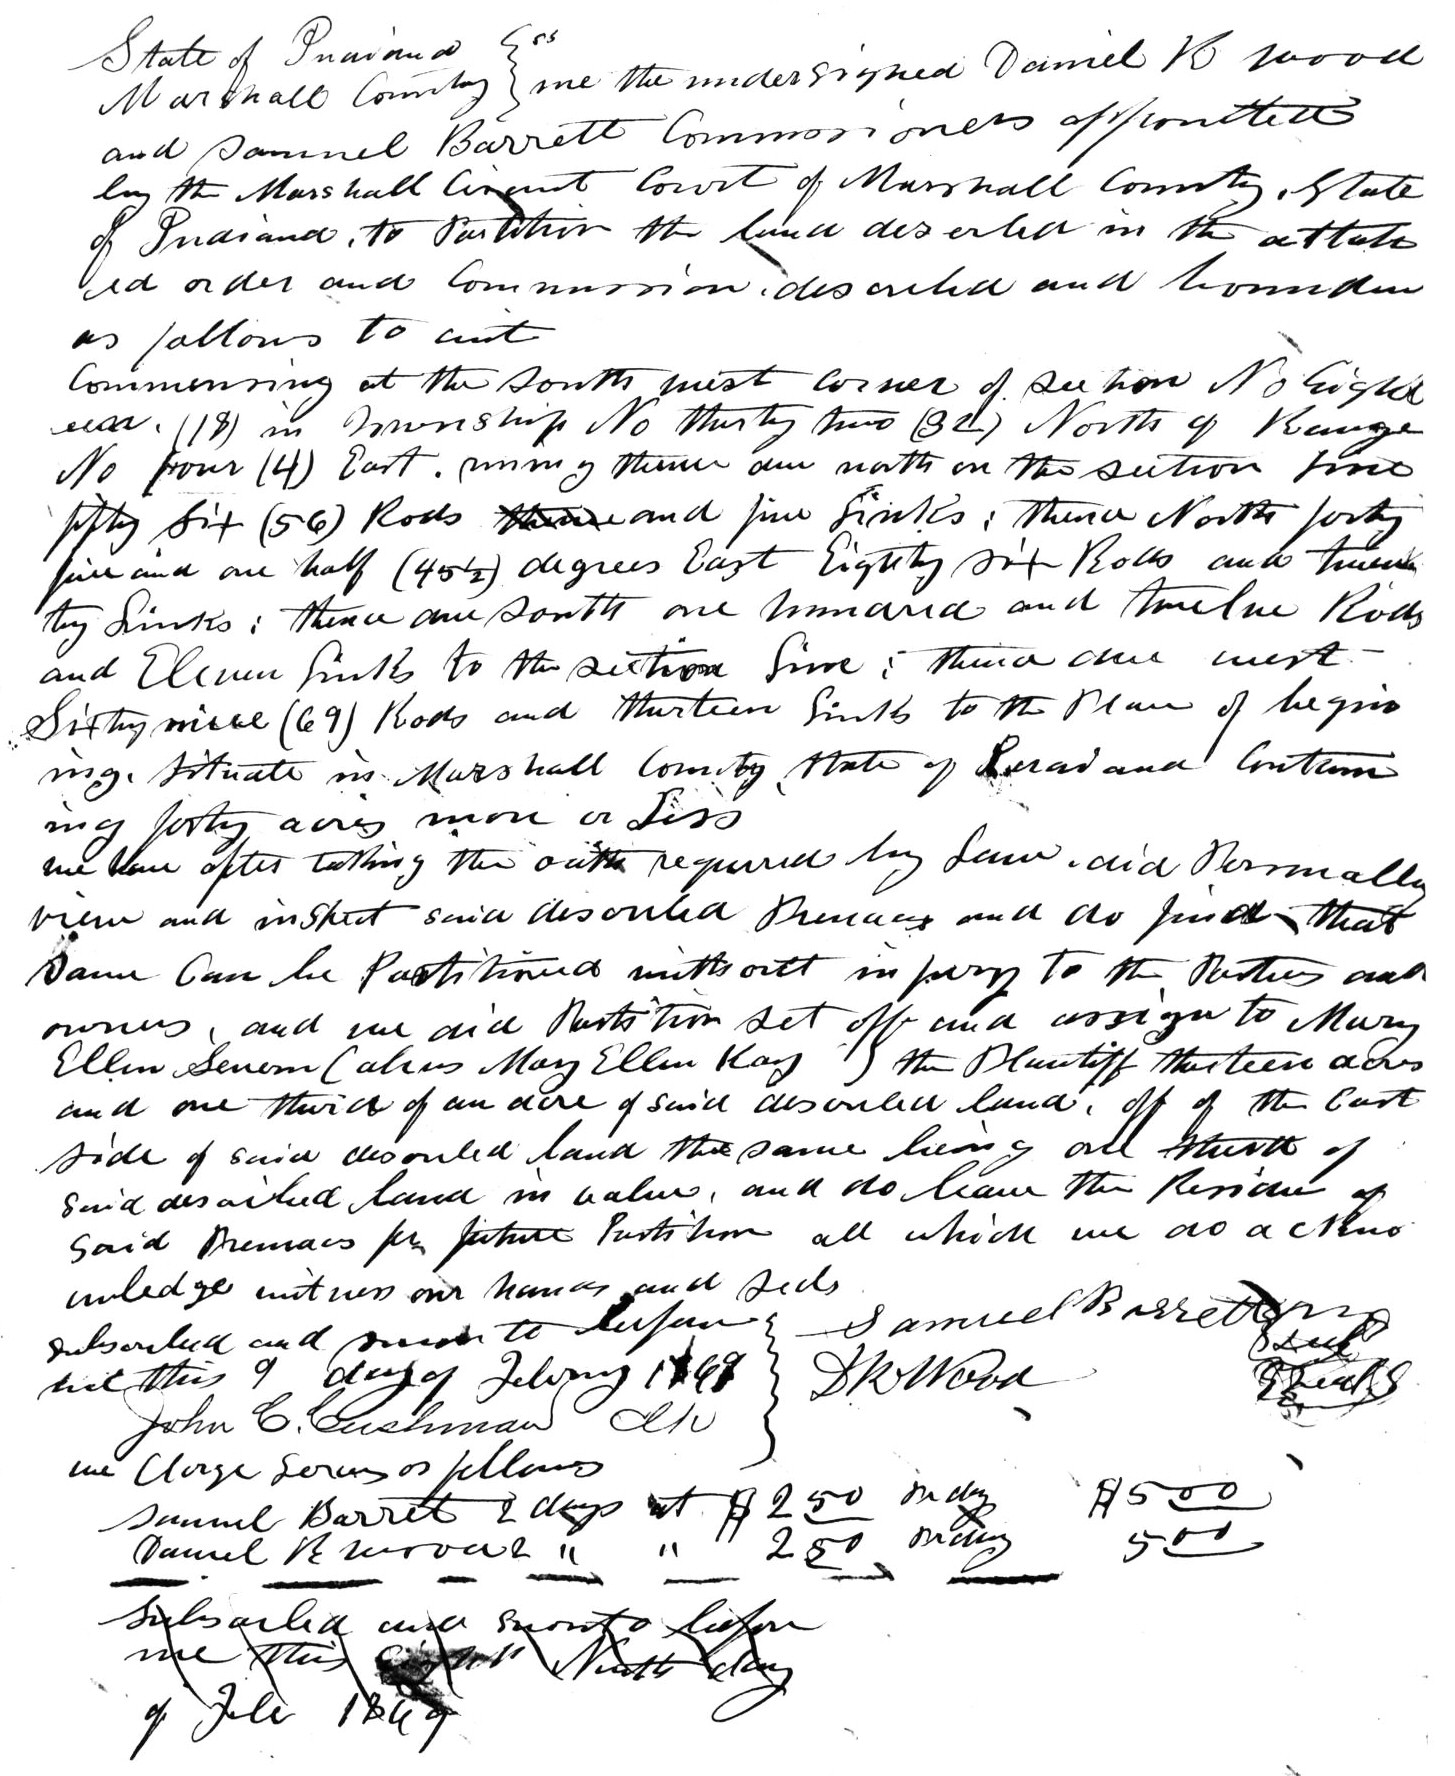 State of Indiana } ss
Marshall County } we the undersigned Daniel K Wood
and Samuel Barrett Commissioners appointted
by the Marshall Circuit Court of Marshall County, State
of Indiana, to Partition the land descrbed in the attatch
ed order and Commission, described and bounden
as follows to wit
Commensing at the South west corner of Section No Eight
een, (18) in Township No thirty two (32) North of Range
No four (4) East. runing thence due north on the section Line
fifty six (56) Rods and five Links; thence North forty
five and one half (45½) degrees East Eighty six Rods and twen
ty Links; thence due South one hundred and twelve Rods
and Eleven Links to the section Line; thence due west
Sixty nine (69) Rods and thirteen Links to the Place of begin
ing, situate in Marshall County State of Indiana Contain
ing forty acres more or Less
we have after taking the oath required by Law, did Personally
view and inspect said described Premices and do find that
Same Can be Partitioned without injury to the Parties and
owners, and we did Partition set off and assign to Mary
Ellen Severn (alias Mary Ellen Kay) the Plantiff thirteen acres
and one third of an acre of said described land, off of the East
side of said described land the same being one third of
said described land in value, and do leave the Residue of
said Premices for future Partition all which we do ackno
wledge witness our hands and seals
subscribed and sworn to before } Samuel Barrett
me this 9 day of Febuary 1869 } D K Wood
John C. Cushman Clk
we Charge Serveses as follows
Samuel Barret 2 days at $2 50 per day $5 00
Daniel K Wood 2 " " 2 50 per day 5 00
Subscribed and sworn to before
me this Ninth day
of Feb 1869